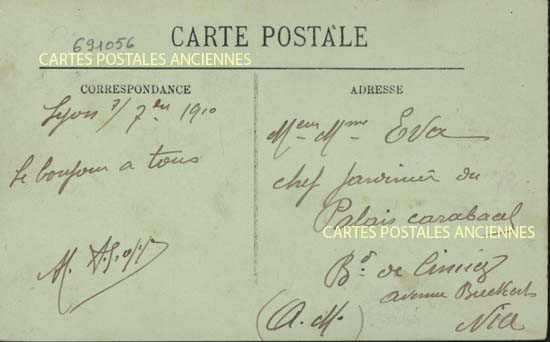 691056
CARTE POSTALE
CARTES POSTALES ANCIENNES
CORRESPONDANCE
ADRESSE
Lyon 7/7bre 1910
Le bonjour a tous
Meur Mme Eva
chef Jardinier du
Palais carabacel
CARTES POSTALES ANCIENNES
Bd de Cimiez
avenue
(A. M.)
Nice